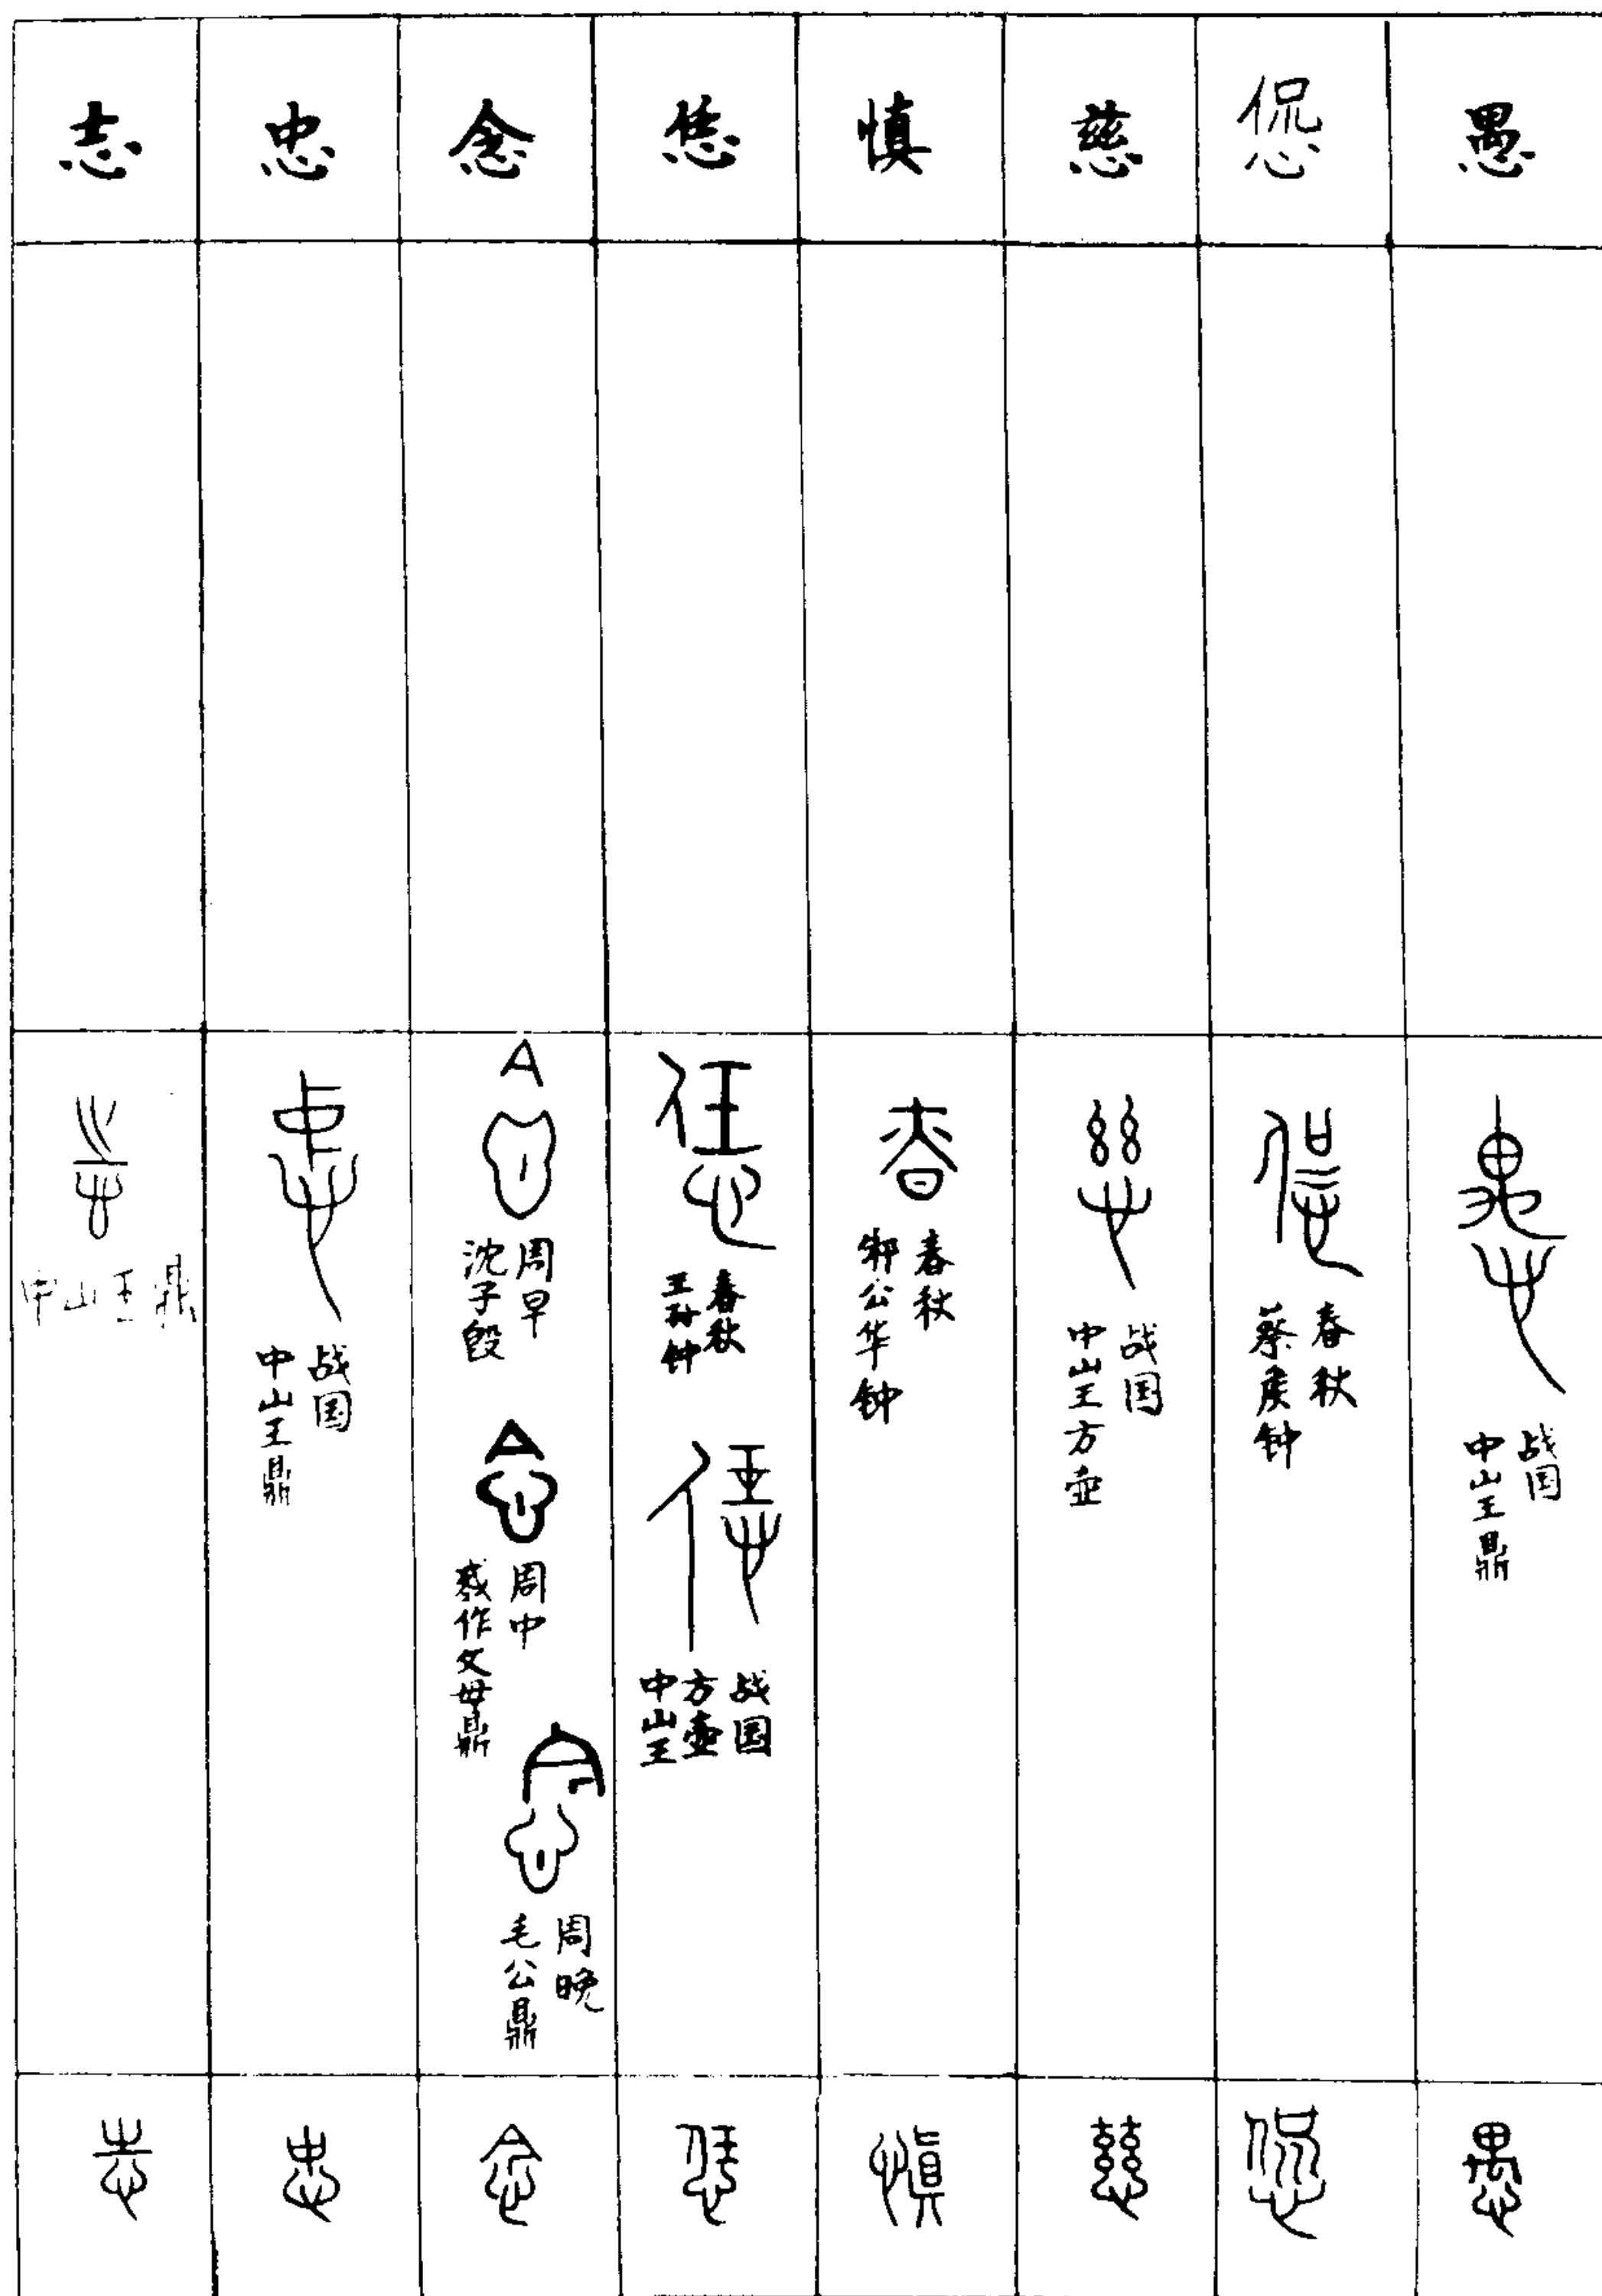 志 忠 念 恁 慎 慈 侃心 愚
中山王鼎
战国
中山王鼎
周早
沈子𣪘
周中
作文母鼎
周晚
毛公鼎
春秋
王孙钟
战国
方壶
中山王
春秋
邾公华钟
战国
中山王方壶
春秋
蔡侯钟
战国
中山王鼎
志 忠 念 恁 慎 慈 愚